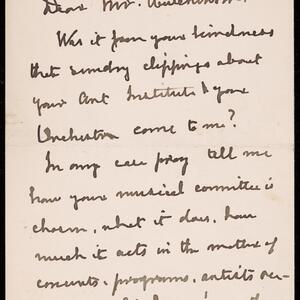 Dear Mr. Hutchinson:
Was it from your kindness
that sundry clippings about
your Art Institute & your
Orchestra come to me?
In any case pray tell me
how your musical committee is
chosen, what it does, how
much it acts in the matter of
concerts, programs, artists en-